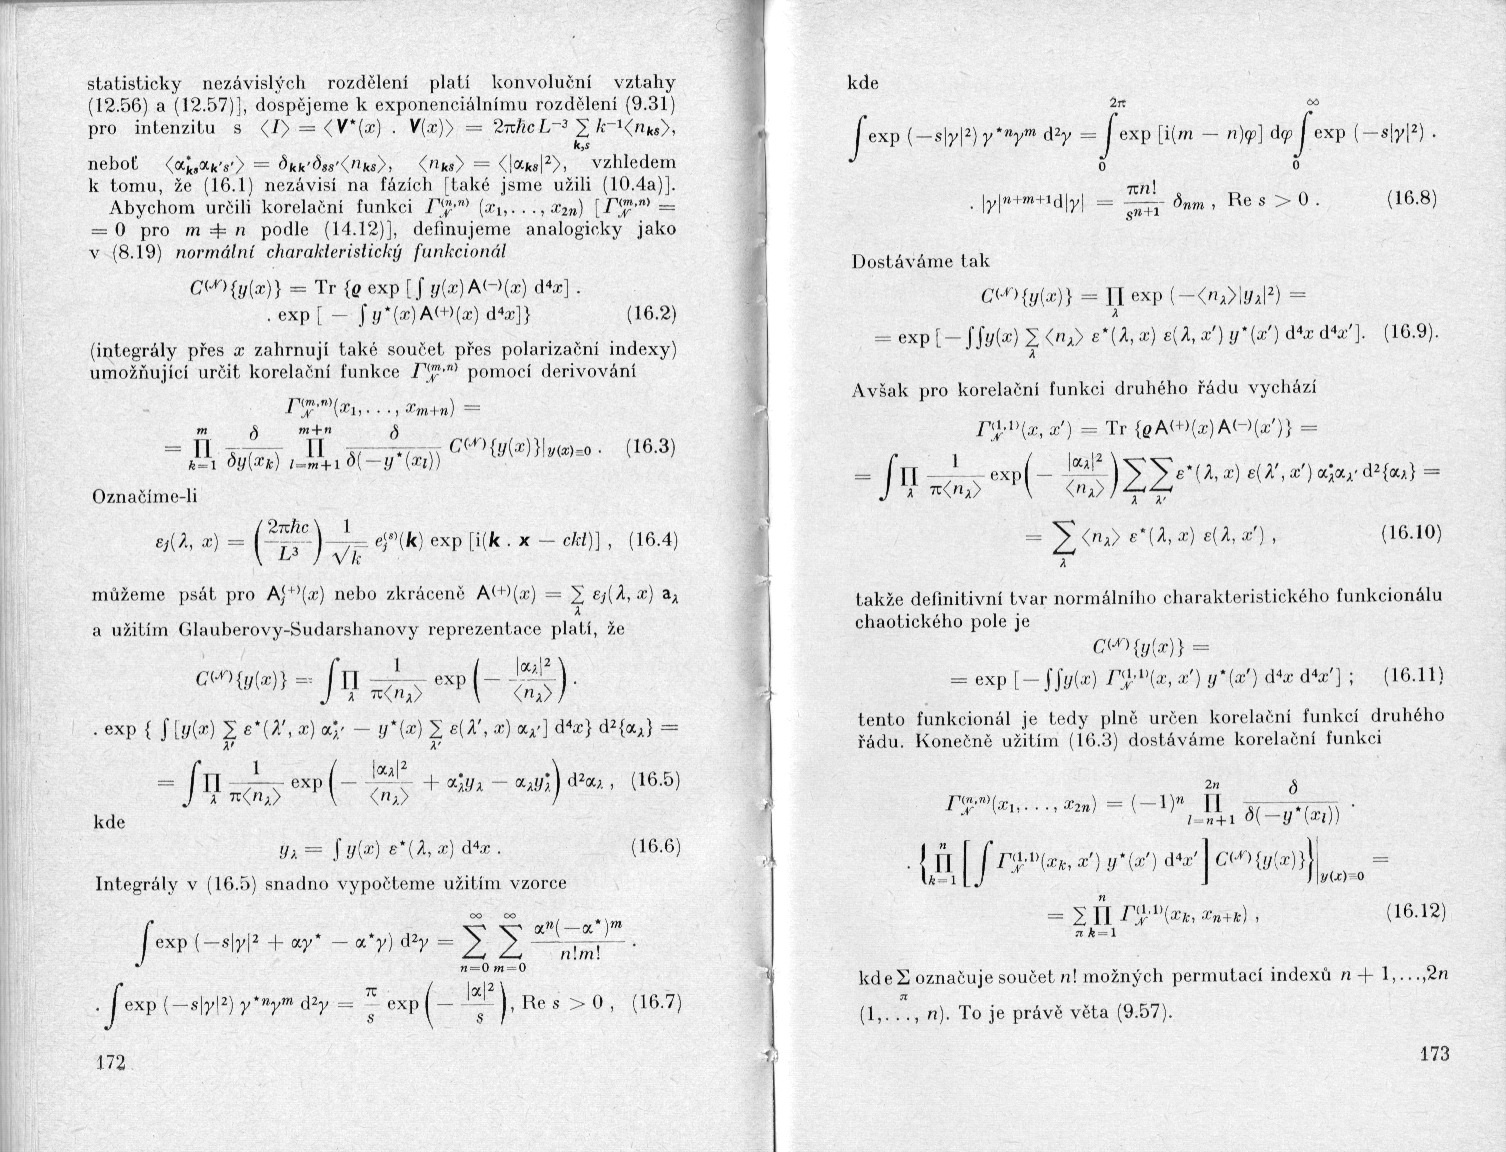 statisticky nezávislých rozdělení platí konvoluční vztahy
(12.56) a (12.57)], dospějeme k exponenciálnímu rozdělení (9.31)
pro intenzitu s ⟨I⟩ = ⟨V*(x) . V(x)⟩ = 2πħcL⁻³ ∑ k⁻¹⟨nₖₛ⟩,
k,s
neboť ⟨α*ₖₛαₖ′ₛ′⟩ = δₖₖ′δₛₛ′⟨nₖₛ⟩, ⟨nₖₛ⟩ = ⟨|αₖₛ|²⟩, vzhledem
k tomu, že (16.1) nezávisí na fázích [také jsme užili (10.4a)].
Abychom určili korelační funkci Γ_𝒩^(n,n) (x₁,..., x₂ₙ) [Γ_𝒩^(m,n) =
= 0 pro m ≠ n podle (14.12)], definujeme analogicky jako
v (8.19) normální charakteristický funkcionál
C^(𝒩){y(x)} = Tr {ϱ exp [∫ y(x) A^(−)(x) d⁴x] .
. exp [ − ∫ y*(x) A^(+)(x) d⁴x]} (16.2)
(integrály přes x zahrnují také součet přes polarizační indexy)
umožňující určit korelační funkce Γ_𝒩^(m,n) pomocí derivování
Γ_𝒩^(m,n)(x₁,..., x_{m+n}) =
= ∏_{k=1}^{m} δ/δy(xₖ) ∏_{l=m+1}^{m+n} δ/δ(−y*(x_l)) C^(𝒩){y(x)}|_{y(x)=0} . (16.3)
Označíme-li
εⱼ(λ, x) = (2πħc/L³) 1/√k eⱼ^(s)(k) exp [i(k . x − ckt)] , (16.4)
můžeme psát pro Aⱼ^(+)(x) nebo zkráceně A^(+)(x) = ∑_λ εⱼ(λ, x) a_λ
a užitím Glauberovy-Sudarshanovy reprezentace platí, že
C^(𝒩){y(x)} = ∫ ∏_λ 1/π⟨n_λ⟩ exp (− |α_λ|²/⟨n_λ⟩) .
. exp { ∫ [y(x) ∑_λ′ ε*(λ′, x) α*_λ′ − y*(x) ∑_λ′ ε(λ′, x) α_λ′] d⁴x} d²{α_λ} =
= ∫ ∏_λ 1/π⟨n_λ⟩ exp (− |α_λ|²/⟨n_λ⟩ + α*_λ y_λ − α_λ y*_λ) d²α_λ , (16.5)
kde
y_λ = ∫ y(x) ε*(λ, x) d⁴x . (16.6)
Integrály v (16.5) snadno vypočteme užitím vzorce
∫ exp (−s|γ|² + αγ* − α*γ) d²γ = ∑_{n=0}^{∞} ∑_{m=0}^{∞} αⁿ(−α*)ᵐ/n!m! .
. ∫ exp (−s|γ|²) γ*ⁿγᵐ d²γ = π/s exp (− |α|²/s), Re s > 0 , (16.7)
172
kde
∫ exp (−s|γ|²) γ*ⁿγᵐ d²γ = ∫_0^{2π} exp [i(m − n)φ] dφ ∫_0^∞ exp (−s|γ|²) .
. |γ|ⁿ⁺ᵐ⁺¹d|γ| = πn!/sⁿ⁺¹ δₙₘ , Re s > 0 . (16.8)
Dostáváme tak
C^(𝒩){y(x)} = ∏_λ exp (−⟨n_λ⟩|y_λ|²) =
= exp [−∫∫y(x) ∑_λ ⟨n_λ⟩ ε*(λ, x) ε(λ, x′) y*(x′) d⁴x d⁴x′]. (16.9).
Avšak pro korelační funkci druhého řádu vychází
Γ_𝒩^(1,1)(x, x′) = Tr {ϱA^(+)(x)A^(−)(x′)} =
= ∫ ∏_λ 1/π⟨n_λ⟩ exp(− |α_λ|²/⟨n_λ⟩) ∑_λ ∑_λ′ ε*(λ, x) ε(λ′, x′) α*_λ α_λ′ d²{α_λ} =
= ∑_λ ⟨n_λ⟩ ε*(λ, x) ε(λ, x′) , (16.10)
takže definitivní tvar normálního charakteristického funkcionálu
chaotického pole je
C^(𝒩){y(x)} =
= exp [−∫∫y(x) Γ_𝒩^(1,1)(x, x′) y*(x′) d⁴x d⁴x′] ; (16.11)
tento funkcionál je tedy plně určen korelační funkcí druhého
řádu. Konečně užitím (16.3) dostáváme korelační funkci
Γ_𝒩^(n,n)(x₁,..., x₂ₙ) = (−1)ⁿ ∏_{l=n+1}^{2n} δ/δ(−y*(x_l)) .
. {∏_{k=1}^{n} [∫ Γ_𝒩^(1,1)(xₖ, x′) y*(x′) d⁴x′] C^(𝒩){y(x)}}|_{y(x)=0} =
= ∑_π ∏_{k=1}^{n} Γ_𝒩^(1,1)(xₖ, xₙ₊ₖ) , (16.12)
kde ∑_π označuje součet n! možných permutací indexů n + 1,...,2n
(1,..., n). To je právě věta (9.57).
173